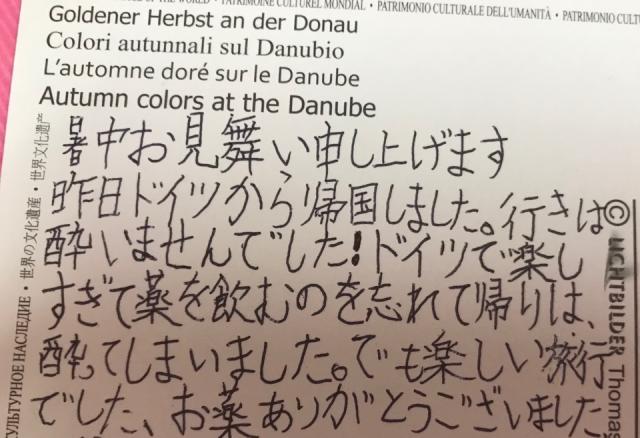 OF THE WORLD • PATRIMOINE CULTUREL MONDIAL • PATRIMONIO CULTURALE DELL'UMANITÀ • PATRIMONIO CULTU
Goldener Herbst an der Donau
Colori autunnali sul Danubio
L'automne doré sur le Danube
Autumn colors at the Danube
暑中お見舞い申し上げます
昨日ドイツから帰国しました。行きは
酔いませんでした!ドイツで楽し
すぎて薬を飲むのを忘れて帰りは、
酔ってしまいました。でも楽しい旅行
でした、お薬ありがとうございました
КУЛЬТУРНОЕ НАСЛЕДИЕ • 世界の文化遺産 • 世界文化遗产
© LICHTBILDER Thomas